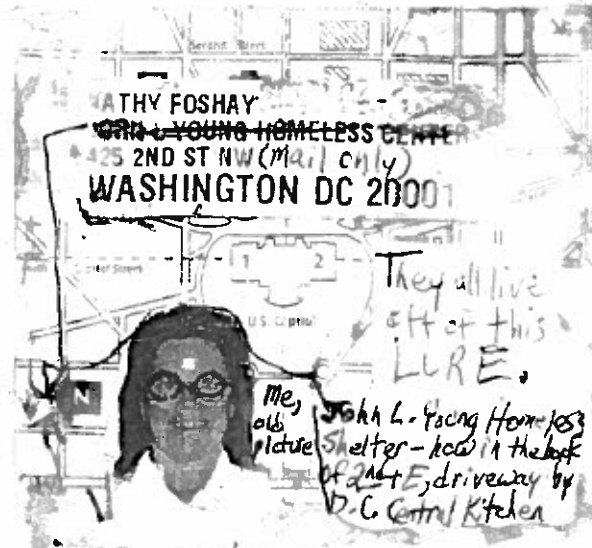 Second Street
ATHY FOSHAY
YOUNG HOMELESS CENTER
425 2ND ST NW (Mail only)
WASHINGTON DC 20001
1 2
Street
U.S. Capitol
They all live
off of this
LURE.
N
Me,
old
picture
John L. Young Homeless
Shelter - now in the back
of 2nd + E, driveway by
D.C. Central Kitchen